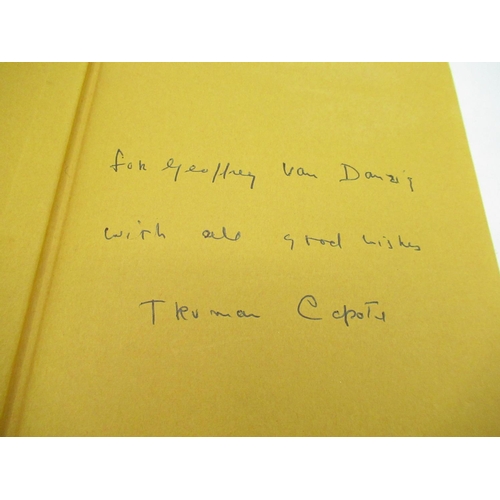 for Geoffrey Van Danzig
with all good wishes
Truman Capote